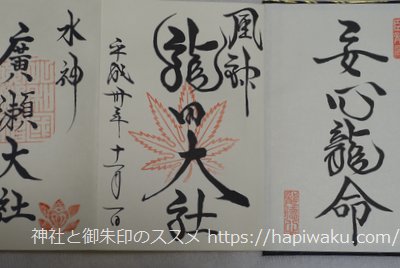 安心龍命
風神
龍田大社
平成卅年十一月一日
水神
廣瀬大社
神社と御朱印のススメ https://hapiwaku.com/